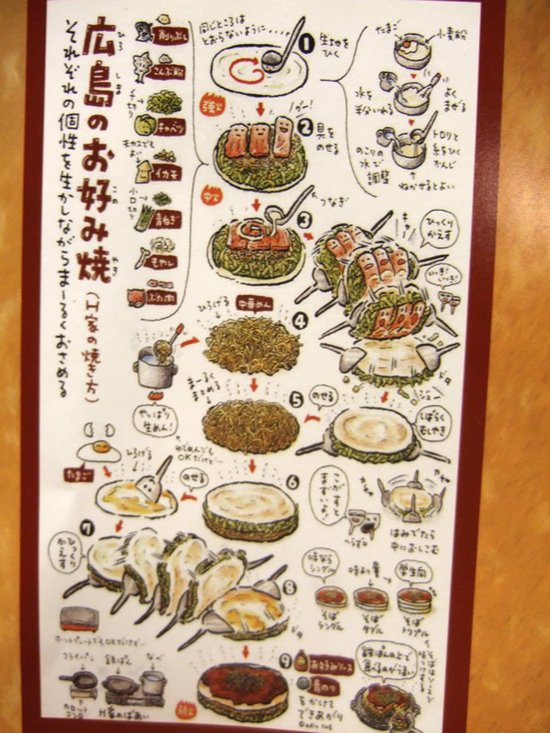 広島のお好み焼
ひろ
しま
この
やき
(H家の焼き方)
それぞれの個性を生かしながらまーるくおさめる
削りぶし
こんぶ粉
千切り
キャベツ
イカ天
小口切り
青ねぎ
もやし
ぶた肉
同じところは
とおらないように・・・・
1
生地を
ひく
たまご
小麦粉
水を
半分いれる
よく
まぜる
のこりの
水で
調整
トロリと
糸を
ひく
かんじ
ねかせるとよい
強火
2
具を
のせる
中火
つなぎ
3
ひっくり
かえす
ひろげる
中華めん
4
やっぱり
生めん!
まーるく
まとめる
5
のせる
しばらく
むしやき
ゆでめんでも
OKだけど…
たまご
ひろげる
のせる
6
こがすと
まずいよ!
はみでたら
中におしこむ
7
ひっくり
かえす
8
味なら
シングル
味より量
学生向
そば
シングル
そば
ダブル
そば
トリプル
ホットプレートでもOKだけど…
フライパン
鉄ぱん
なべ
カセット
コンロ
H家のばあい
9
お好みソース
青のり
をかけて
できあがり
鉄ぱんの上で
食べるのがうまい